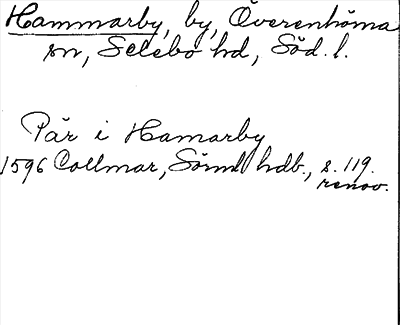 Hammarby, by, Överenhöma
sn, Selebo hd, Söd. l.
Pär i Hamarby
1596 Collmar, Sörml hdb., s. 119.
renov.